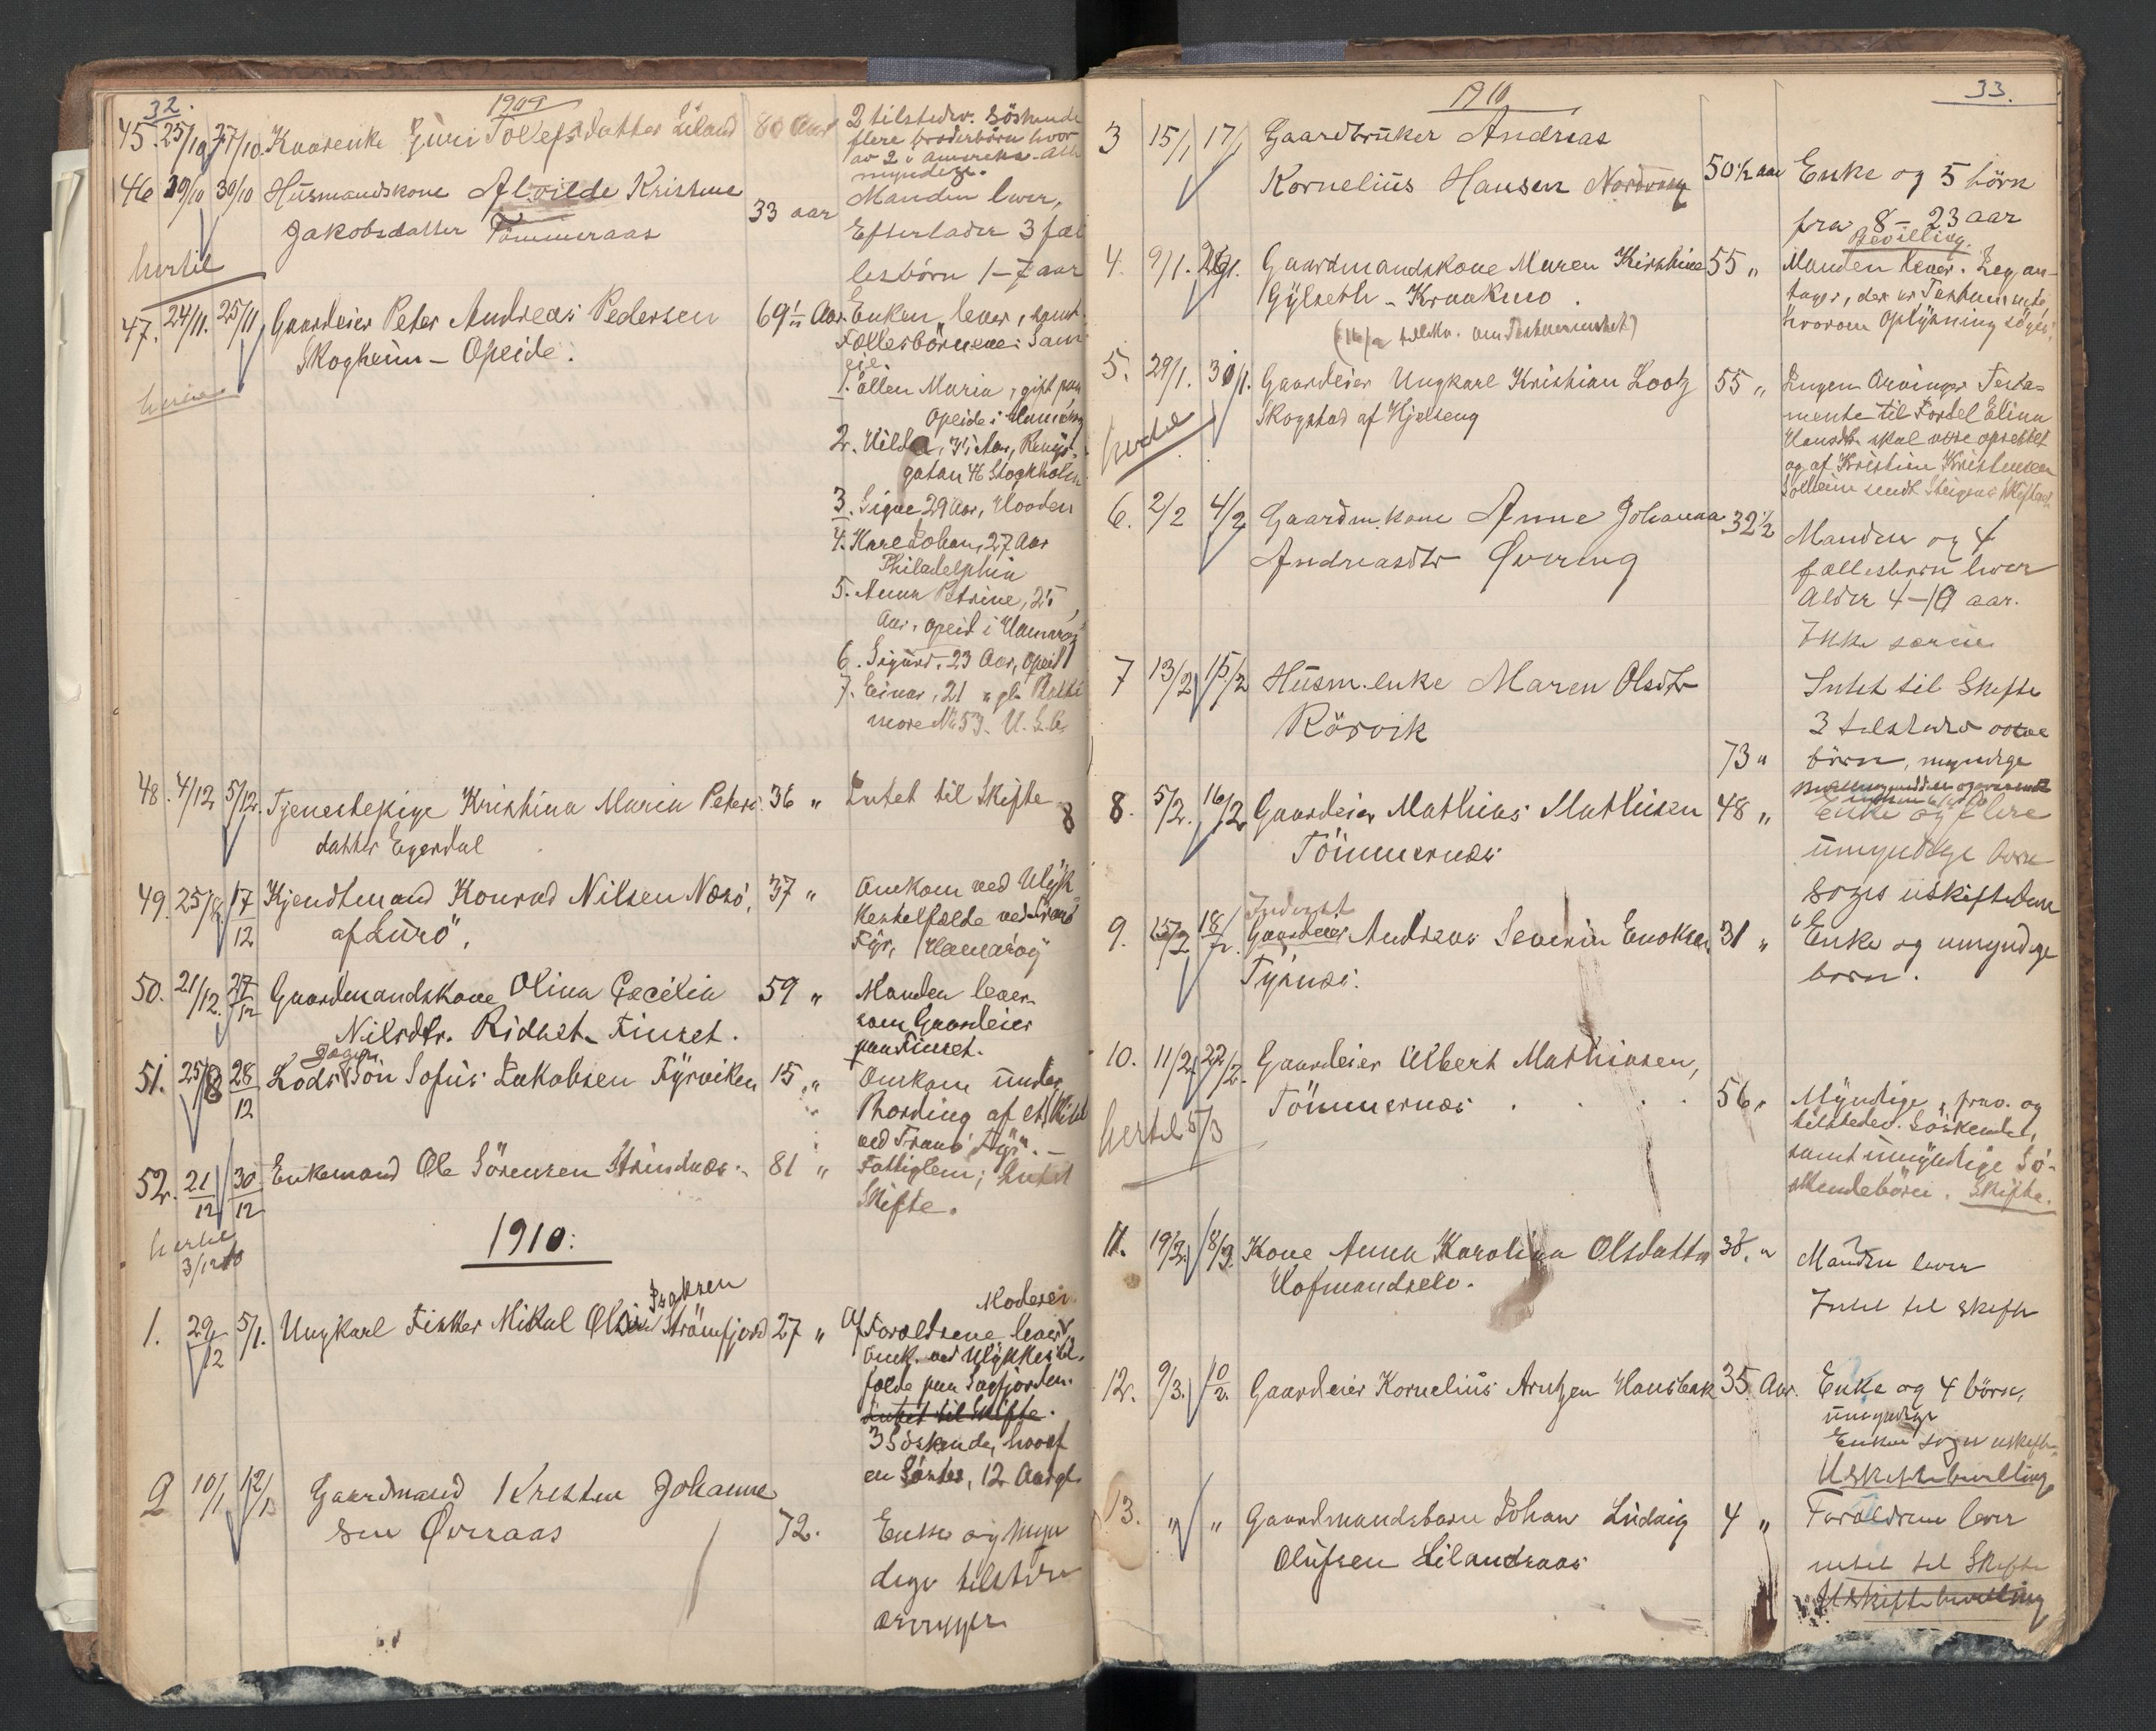 32.
1909
45. 25/10 27/10. Kaarenke Guri Tollefsdatter Liland 80 Aar
2 tilstedev. Söskende
flere broderbörn hvor
av 2 i Amerika. Alle
myndige.
46 29/10 30/10 Husmandskone Alvilde Kristine
Jakobsdatter Tömmeraas 33 aar
Manden lever,
Efterlader 3 fæl
lesbörn 1-7 aar
hertil
47. 24/11. 25/11 Gaardeier Peter Andreas Pedersen 69 Aar.
Skogheim - Opeide.
Enken lever, samt
Fællesbörnene:
1. Ellen Maria, gift paa
Opeide i Hamarøy
2. Hilda, Aar,
gatan 46 Stockholm
3. Signe 29 Aar,
4. Karl Johan, 27 Aar
Philadelphia
5. Anna Petrine, 25
Aar, Opeid i Hamarøy
6. Sigurd. 23 Aar, Opeid
7. Einar, 21 " gl. Balti
more No 53. U. S. A.
48. 4/12 5/12. Tjenestepige Kristina Maria Peters 36 " Intet til Skifte
datter Egerdal
8
49. 25/8 17/12 Kjendtmand Konrad Nilsen Næsö, 37 "
af Lurö",
Omkom ved Ulyk
keshelfælde ved Tranö
Fyr, Hamarøy
50. 21/12. 27/12 Gaardmandskone Olina Cecilia 59 "
Nilsdtr. Ridhet. Finset.
Manden lever
som Gaardeier
paa Finset.
51. 25/8 28/12 Lods Sön Sofus Jakobsen Fyrviken 15 "
Omkom under
Bording af et Skib
ved Tranö Fyr". -
52. 21/12 30/12 Enkemand Ole Sörensen Strindnæs. 81 "
Fattiglem; Intet
Skifte.
hertil
3/1210
1910:
1. 29/12 5/1. Ungkarl Fisker Mikal Olsen Isaksen Strömfjord 27 "
Moderen
Af Forældrene lever
Omk. ved Ulykkestil.
fælde paa Sagfjorden.
Intet til skifte.
3 Söskende, hvoraf
en Söster, 12 Aar gl.
2 10/1 12/1 Gaardmand Kristen Johanne
sen Øvraas 72.
Enke og myn
dige tilstedev
arvinger
33.
1910
3 15/1 17/1 Gaardbruker Andreas
Kornelius Hansen Nordvaag 50 1/2 aar
Enke og 5 börn
fra 8-23 aar
Bevilling.
4. 9/1. 26/1. Gaardmandskone Maren Kirstine 55 "
Gylseth - Kraakmo.
Manden lever. Jeg an-
tager, der er Testamente,
hvorom Oplysning söges.
5. 29/1. 30/1. Gaardeier Ungkarl Kristian Lootz 55 "
Skogstad af Hjelseng
hertil
Ingen Arvinger Testa-
mente til Fordel Elina
Hansdtr. skal være oprettet
og af Kristian Kristensen
Solheim sendt Steigens Skifteret
6. 2/2 4/2 Gaardm.kone Anne Johanna 32 1/2
Andreasdtr Øvereng
Manden og 4
fællesbørn lever
Alder 4-10 aar.
Ikke særeie
7 13/2 15/2 Husm.enke Maren Olsdtr
Rörvik
73 "
Intet til Skifte
3 tilstedev
börn, myndige
8. 5/2. 16/2 Gaardeier Mathias Mathisen 48 "
Tömmernæs
Enke og flere
umyndige børn
søges uskiftebev
9. 15/2 18/2. Inderst
Gaardeier Andreas Severin Enoksen 31 "
Tysnæs.
Enke og umyndige
børn.
10. 11/2 22/2. Gaardeier Albert Mathiasen,
Tömmernæs . . . . 56 "
hertil 5/3
Myndige, frav. og
tilstedev. Söskende,
samt umyndige Sö-
skendebörn. Skifte.
11. 19/2. 8/3. Kone Anna Karolina Olsdatter 38. "
Hofmandselv.
Manden lever
Intet til skifte
12. 9/3. 10/2. Gaardeier Kornelius Arntzen Hansbak 35 Aar.
Enke og 4 börn,
umyndige
Enken søger uskifte
Uskiftebevilling
13. " " Gaardmandsbarn Johan Ludvig 4 "
Olufsen Lilandsaas
Forældrene lever
intet til Skifte
Uskiftebevilling